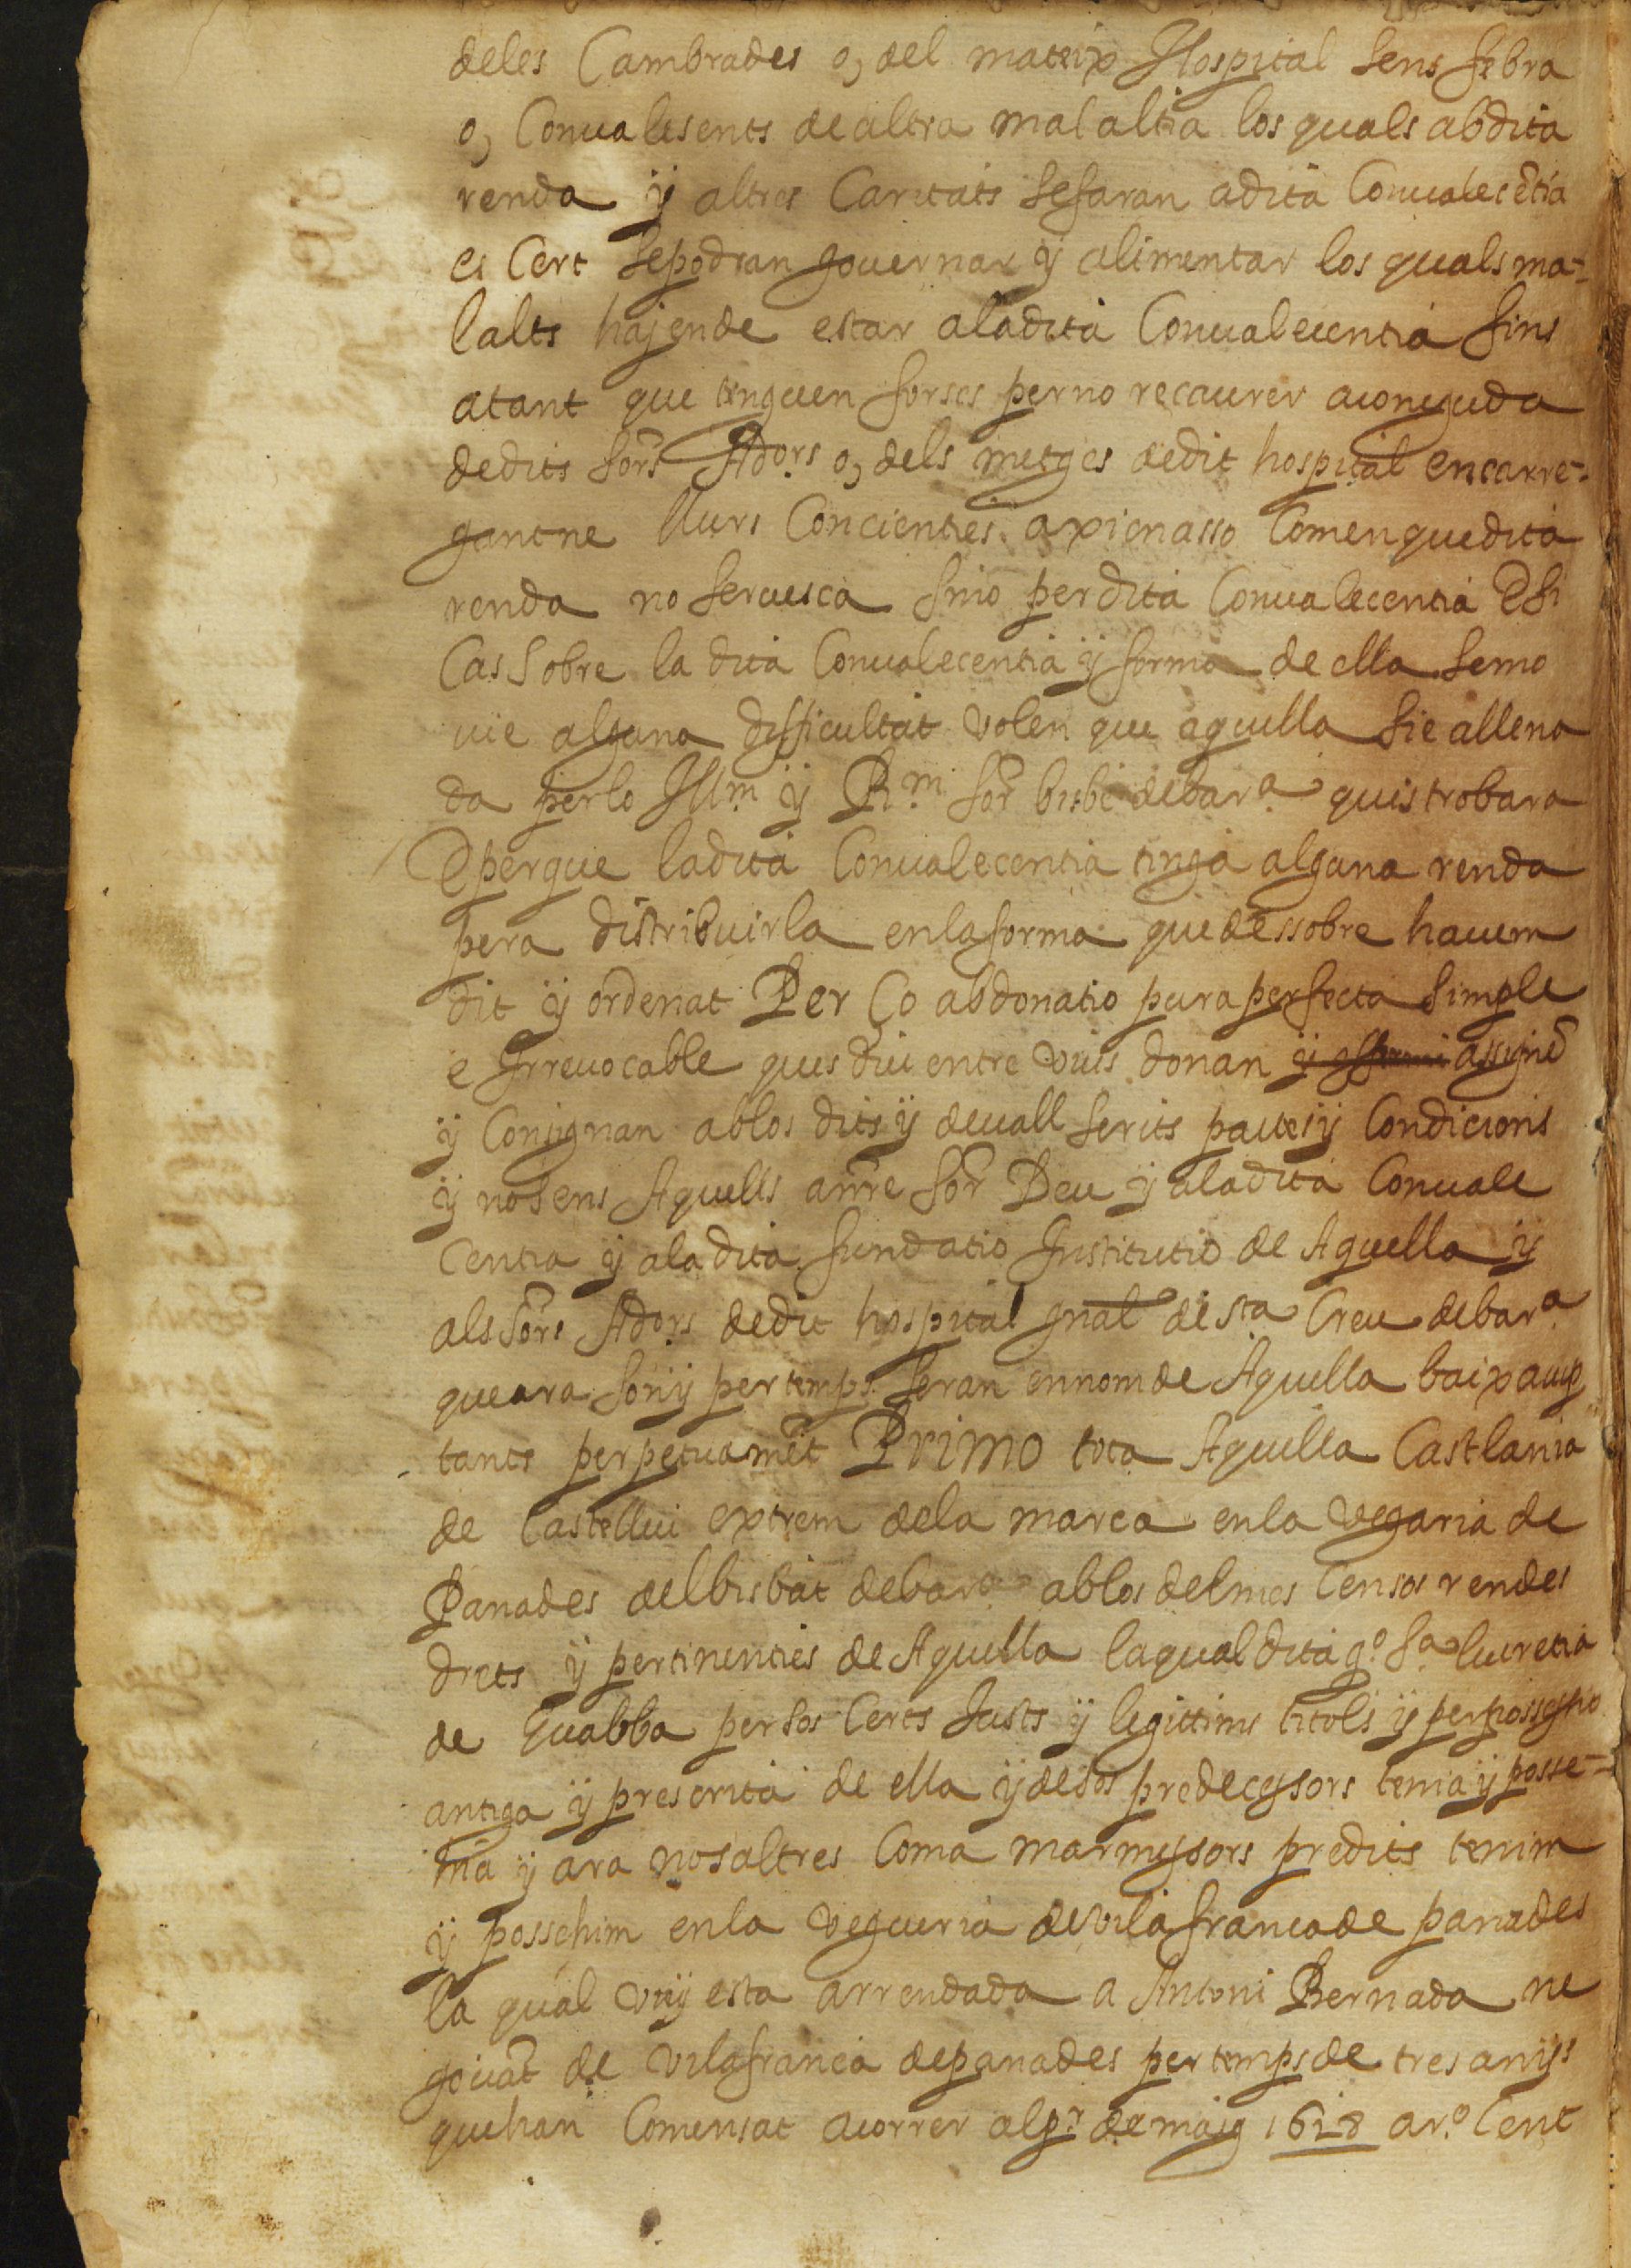 deles Cambrades o, del mateix Hospital sens febra
o, Conualesents de altra malaltia los quals ab dita
renda ÿ altres Caritats se faran a dita Conualecẽtia
es Cert se podran gouernar ÿ alimentar los quals ma-
lalts hajen de estar a la dita Conualecentia fins
a tant que tinguen forses per no recaurer a coneguda
de dits sõrs Adõrs o, dels metges de dit hospital encarre-
gantne llurs Concienties axi en asso Com en que dita
renda no seruesca sino per dita Conualecentia E si
Cas sobre la dita Conualecentia ÿ forma de ella se mo
uie alguna difficultat volen que aquella sie allena
da per lo Illm ÿ Rm sõr bisbe de bara quis trobara
E perque la dita Conualecentia tinga alguna renda
pera distribuirla en la forma que dessobre hauem
dit ÿ ordenat Per ço ab donatio pura perfecta simple
e Irreuocable ques diu entre viũs donan ÿ assignẽ
ÿ Consignan ab los dits ÿ deuall scrits pactes ÿ Condicions
ÿ no sens Aquells a nr̃e sõr Deu ÿ a la dita Conuale
centia ÿ a la dita fundatio Institutio de Aquella ÿ
als sõrs Adõrs de dit hospital gñal de sta Creu de bara
que ara son ÿ per temps seran en nom de Aquella baix acup
tants perpetuamẽt Primo tota Aquella Castlania
de Castellui extrem de la marca en la vegaria de
Panades del bisbat de bara ab los delmes Censos rendes
drets ÿ pertinenties de Aquella la qual dita qo. Sa. lucretia
de Gualbba per sos Certs Justs ÿ legittims titols ÿ per possessio
antiga ÿ prescrita de ella ÿ de sos predecessors tenia ÿ posse-
hia ÿ ara nosaltres Com a marmessors predits tenim
ÿ possehim en la vegueria de vilafranca de panades
la qual vuÿ esta arrendada a Antoni Bernada ne
gociãt de vilafranca de panades per temps de tres anÿs
que han Comensat a correr al pr. de maig 1628 a ro. Cent